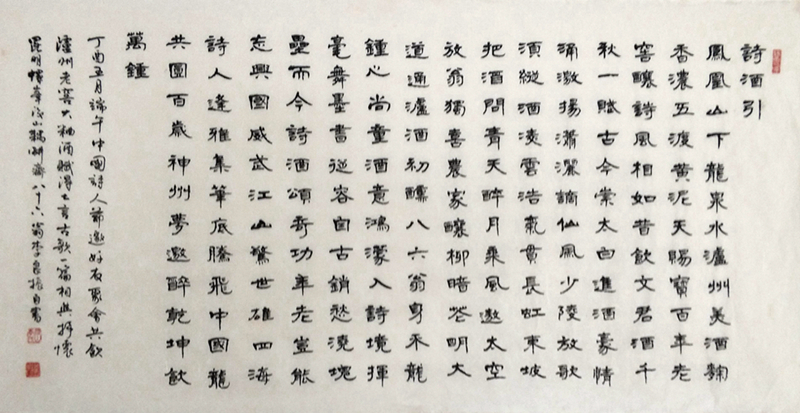 詩酒引
鳳凰山下龍泉水瀘州美酒麴
香濃五渡黃泥天賜寶百年老
窖釀詩風相如昔飲文君酒千
秋一賦古今崇太白進酒豪情
涌激揚瀟灑謫仙風少陵放歌
須縱酒凌雲浩氣貫長虹東坡
把酒問青天醉月乘風遨太空
放翁獨喜農家釀柳暗花明大
道通瀘酒初醺八六翁身不龍
鍾心尚童酒意鴻濛入詩境揮
毫舞墨書從容自古銷愁澆塊
壘而今詩酒頌奇功年老豈能
忘興國威武江山驚世雄四海
詩人逢雅集筆底騰飛中國龍
共圓百歲神州夢邀醉乾坤飲
萬鍾
丁酉五月端午中國詩人節邀好友聚會共飲
瀘州老窖大麯酒賦得七言古歌一篇相與抒懷
昆明 山 湖 八十六翁李 自書